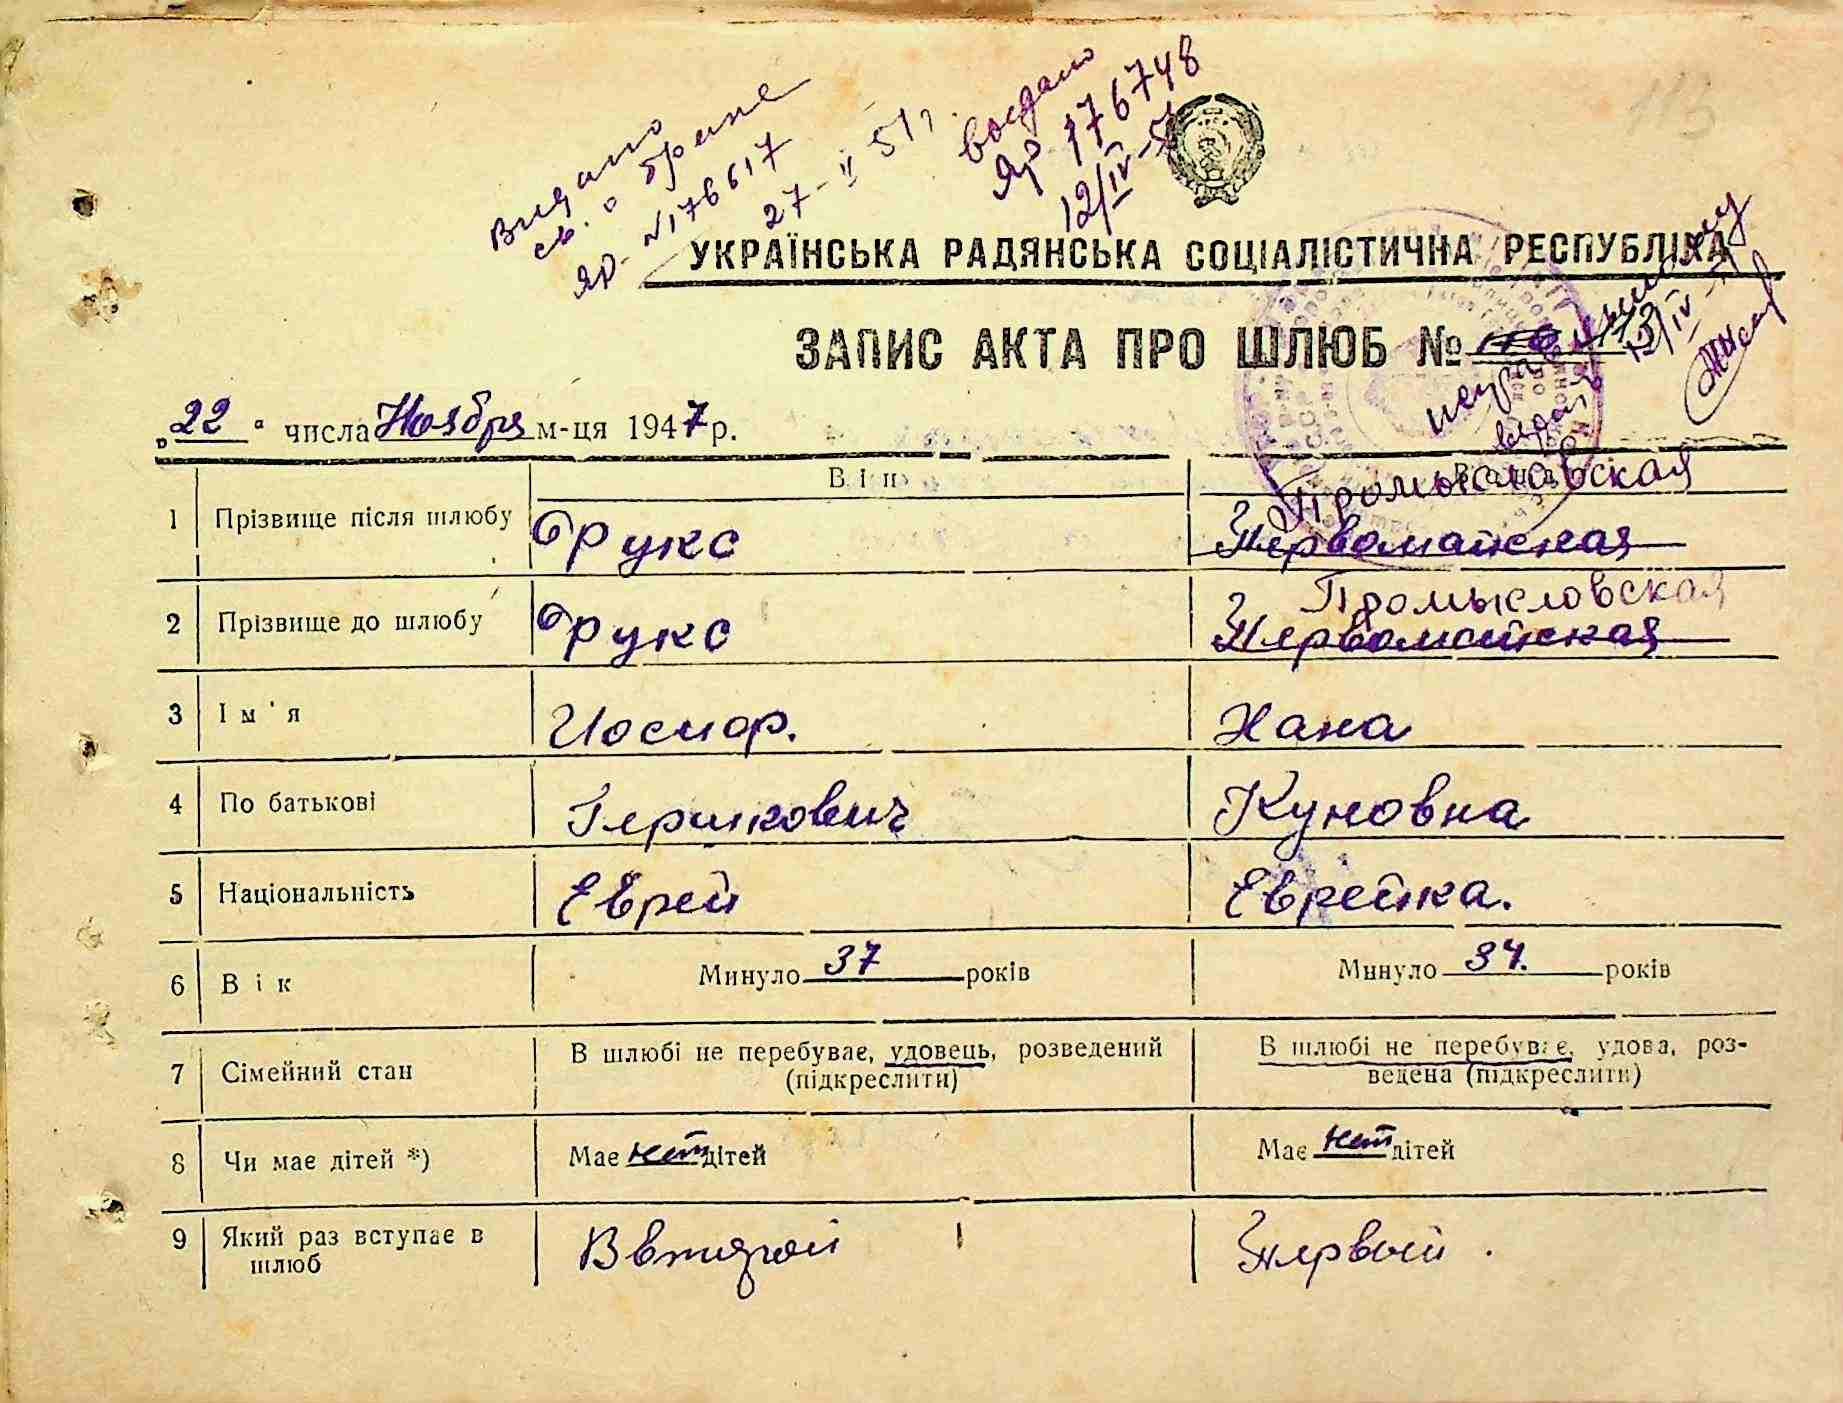 113
Видано
св. о браке
ЯР- №176617
27-II 51г.
выдано
ЯР 176748
12/IV-51
УКРАЇНСЬКА РАДЯНСЬКА СОЦІАЛІСТИЧНА РЕСПУБЛІКА
ЗАПИС АКТА ПРО ШЛЮБ № 113
„22“ числа Ноября м-ця 1947 р.
Він
Вона
1 Прізвище після шлюбу Фукс Промысловская Первомайская
2 Прізвище до шлюбу Фукс Промысловская Первомайская
3 Ім'я Иосиф. Хана
4 По батькові Гершкович Куновна
5 Національність Еврей Еврейка.
6 Вік Минуло 37 років Минуло 34. років
7 Сімейний стан В шлюбі не перебуває, удовець, розведений (підкреслити) В шлюбі не перебуває, удова, роз-
ведена (підкреслити)
8 Чи має дітей *) Має нет дітей Має нет дітей
9 Який раз вступає в Второй Первый.
шлюб